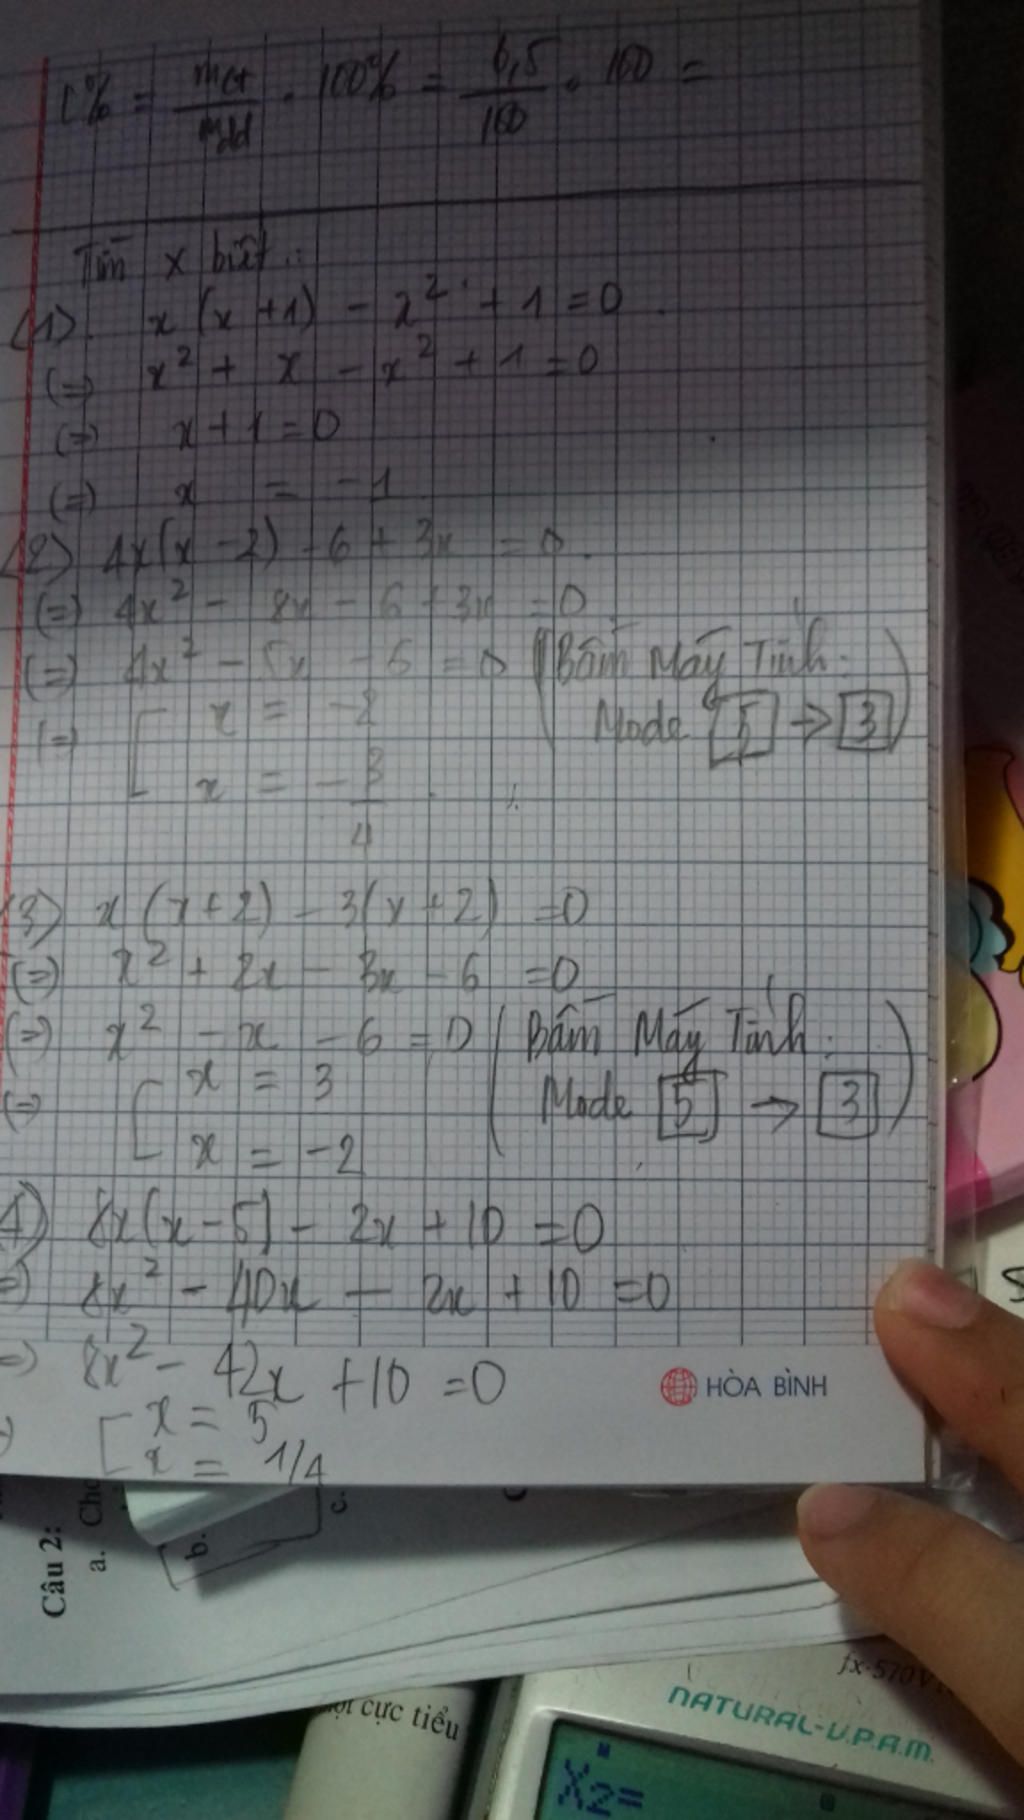 C% = mct/mdd . 100% = 6,5/100 . 100 =
Tìm x biết:
(1) x(x+1) - x² + 1 = 0
(=) x² + x - x² + 1 = 0
(=) x + 1 = 0
(=) x = -1
(2) 4x(x-2) - 6 + 3x = 0
(=) 4x² - 8x - 6 + 3x = 0
(=) 4x² - 5x - 6 = 0 (Bấm Máy Tính:
Mode 5 → 3)
(=) [ x = -2
x = -3/4
(3) x(x+2) - 3(x+2) = 0
(=) x² + 2x - 3x - 6 = 0
(=) x² - x - 6 = 0 (Bấm Máy Tính:
Mode 5 → 3)
(=) [ x = 3
x = -2
4) 8x(x-5) - 2x + 10 = 0
=) 8x² - 40x - 2x + 10 = 0
=) 8x² - 42x + 10 = 0
[ x = 5
x = 1/4
HÒA BÌNH
Câu 2:
a.
b.
c.
cực tiểu
fx-570V
NATURAL-V.P.A.M.
X2=